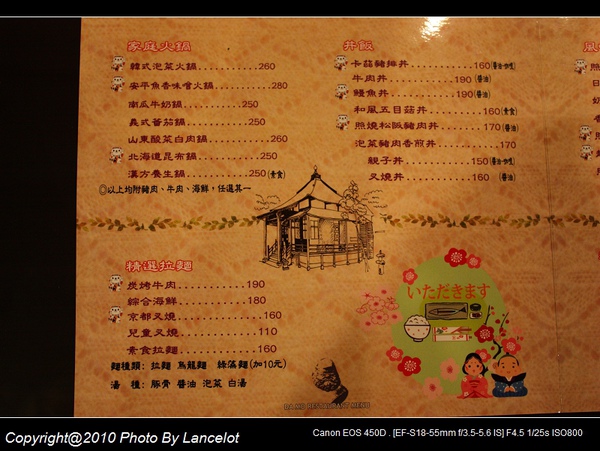 家庭火鍋
韓式泡菜火鍋............260
安平魚香味噌火鍋............280
南瓜牛奶鍋............250
義式蕃茄鍋............250
山東酸菜白肉鍋............260
北海道昆布鍋............250
漢方養生鍋............250(素食)
◎以上均附豬肉、牛肉、海鮮,任選其一
精選拉麵
炭烤牛肉............190
綜合海鮮............180
京都叉燒............160
兒童叉燒............110
素食拉麵............160
麵種類: 拉麵 烏龍麵 綠藻麵(加10元)
湯 種: 豚骨 醬油 泡菜 白湯
丼飯
卡茲豬排丼............160
牛肉丼............190(醬油)
鰻魚丼............190(醬油)
和風五目菇丼............160(素食)
照燒松阪豬肉丼............170(醬油)
泡菜豬肉香煎丼............170
親子丼............150
叉燒丼............160 (醬油)
いただきます
RESTAURANT MENU
Copyright@2010 Photo By Lancelot
Canon EOS 450D . [EF-S18-55mm f/3.5-5.6 IS] F4.5 1/25s ISO800